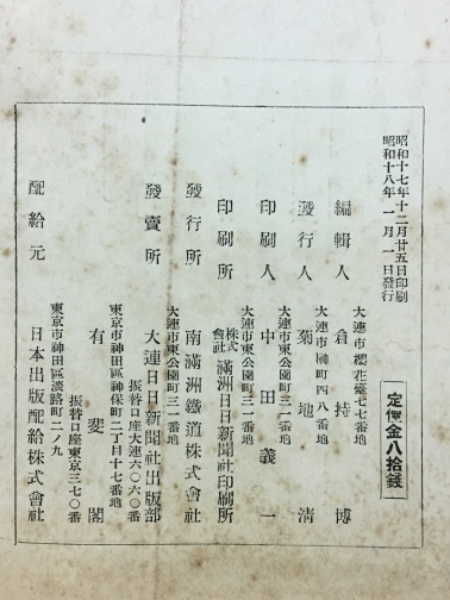 昭和十七年十二月廿五日印刷
昭和十八年一月一日發行
定價金八拾錢
大連市櫻花臺七七番地
編輯人 倉持博
大連市榊町四八番地
發行人 菊地清
大連市東公園町三一番地
印刷人 中田義一
大連市東公園町三一番地
印刷所 株式會社 滿洲日日新聞社印刷所
大連市東公園町三一番地
發行所 南滿洲鐵道株式會社
發賣所 大連日日新聞社出版部
振替口座大連六〇六〇番
東京市神田區神保町二丁目十七番地
有斐閣
振替口座東京三七〇番
東京市神田區淡路町二ノ九
配給元 日本出版配給株式會社